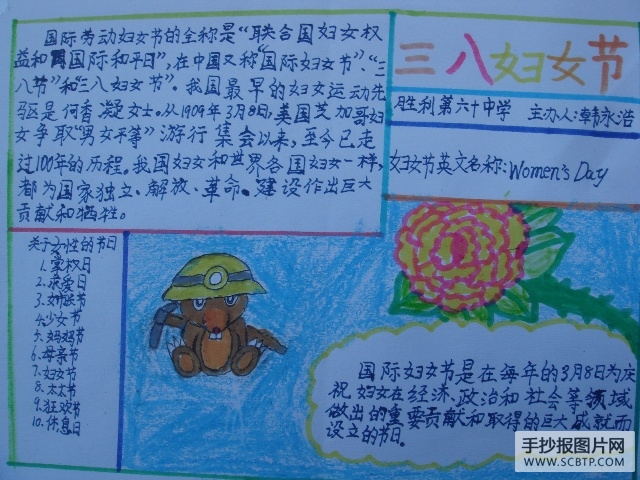 国际劳动妇女节的全称是“联合国妇女权
益和国际和平日”,在中国又称“国际妇女节”、“三
八节”和“三八妇女节”。我国最早的妇女运动先
驱是何香凝女士。从1909年3月8日,美国芝加哥妇
女争取“男女平等”游行集会以来,至今已走
过100年的历程。我国妇女和世界各国妇女一样,
都为国家独立、解放、革命、建设作出巨大
贡献和牺牲。
三八妇女节
胜利第六十中学 主办人:韩永浩
妇女节英文名称:Women's Day
关于女性的节日
1.掌权日
2.求爱日
3.姊妹节
4.少女节
5.妈妈节
6.母亲节
7.妇女节
8.太太节
9.狂欢节
10.休息日
国际妇女节是在每年的3月8日为庆
祝妇女在经济、政治和社会等领域
做出的重要贡献和取得的巨大成就而
设立的节日。
手抄报图片网
WWW.SCBTP.COM